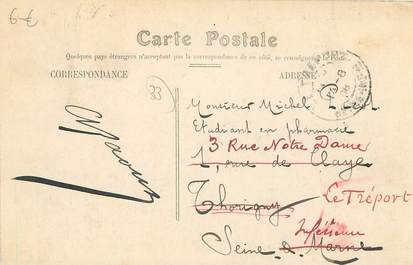 6€
Carte Postale
Quelques pays étrangers n'acceptent pas la correspondance de ce côté, se renseigner
CORRESPONDANCE
ADRESSE
33
Monsieur Michel
Etudiant en pharmacie
3 Rue Notre Dame
1, rue de Claye
Thorigny
Le Tréport
Seine Inférieure
Seine & Marne